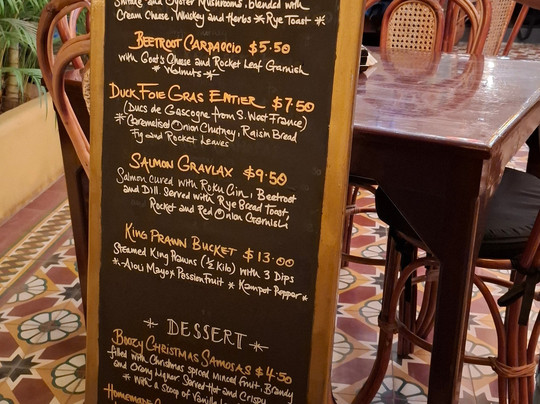 Shiitake and Oyster Mushrooms, blended with
Cream Cheese, Whiskey and Herbs * Rye Toast *
BEETROOT CARPACCIO $5.50
with Goat's Cheese and Rocket Leaf Garnish
* Walnuts *
DUCK FOIE GRAS ENTIER $7.50
(Ducs de Gascogne from S. West France)
* Caramelised Onion Chutney, Raisin Bread
Fig and Rocket Leaves
SALMON GRAVLAX $9.50
Salmon cured with Roku Gin, Beetroot
and Dill. Served with Rye Bread Toast,
Rocket and Red Onion Garnish
KING PRAWN BUCKET $13.00
Steamed King Prawns (½ Kilo) with 3 Dips
*-Aioli Mayo * Passion Fruit * Kampot Pepper *
* DESSERT *
BOOZY CHRISTMAS SAMOSAS $4.50
filled with Christmas spiced Minced Fruit, Brandy
and Orang Liqueur Served Hot and Crispy
* With a Scoop of Vanilla
HOMEMADE